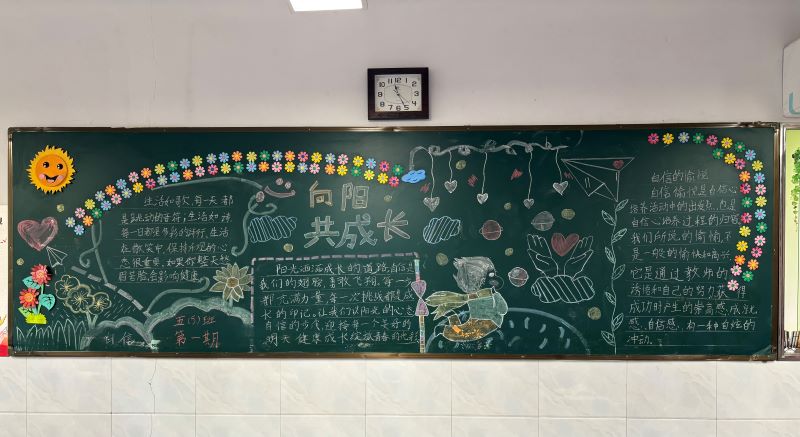 向阳
共成长
生活如歌，每一天都
是跳动的音符；生活如诗
每一日都是多彩的诗行。生活
在微笑中，保持乐观的心
态很重要，如果你整天愁
眉苦脸，会影响健康
五(5)班
第一期
自信
阳光洒满成长的道路，自信是
我们的翅膀，勇敢飞翔，每一
都充满力量，每一次挑战都是成
长的印记。让我们以阳光的心态
自信的步伐，迎接每一个美好的
明天，健康成长绽放青春的光彩
自信的愉悦
自信愉悦是自信心
培养活动中的出发点，也是
自信心培养过程的归宿
我们所说的愉悦不
是一般的愉快和高兴
它是通过教师的
诱情和自己的努力获得
成功时产生的崇高感，成就
感、自信感，有一种自炫的
冲动。